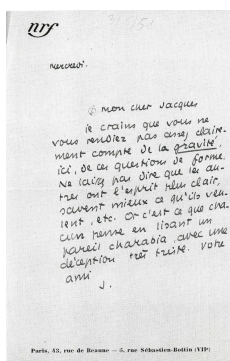 nrf
mercredi.
mon cher Jacques
je crains que vous ne
vous rendiez pas assez claire-
ment compte de la gravité,
ici, de ces questions de forme.
Ne laissez pas dire que les au-
tres ont l'esprit plus clair,
savent mieux ce qu'ils veu-
lent, etc. Or c'est ce que cha-
cun pense en lisant un
pareil charabia, avec une
déception très triste. Votre
ami
J.
Paris, 43, rue de Beaune — 5, rue Sébastien-Bottin (VIIe)